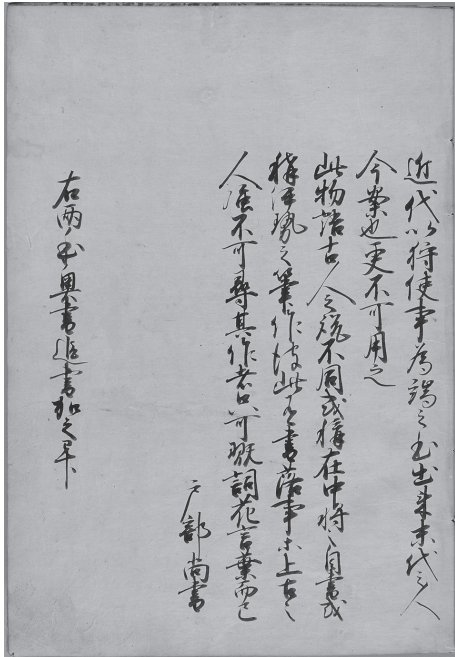 近代以狩使事為端之本出来末代之人
今案也更不可用之
此物語古人之説不同或構在中将之自書或
構伊勢之筆作彼此有書落事等上古之
人強不可尋其作者只可翫詞花言葉而已
戸部尚書
右両本奥書進書加之畢